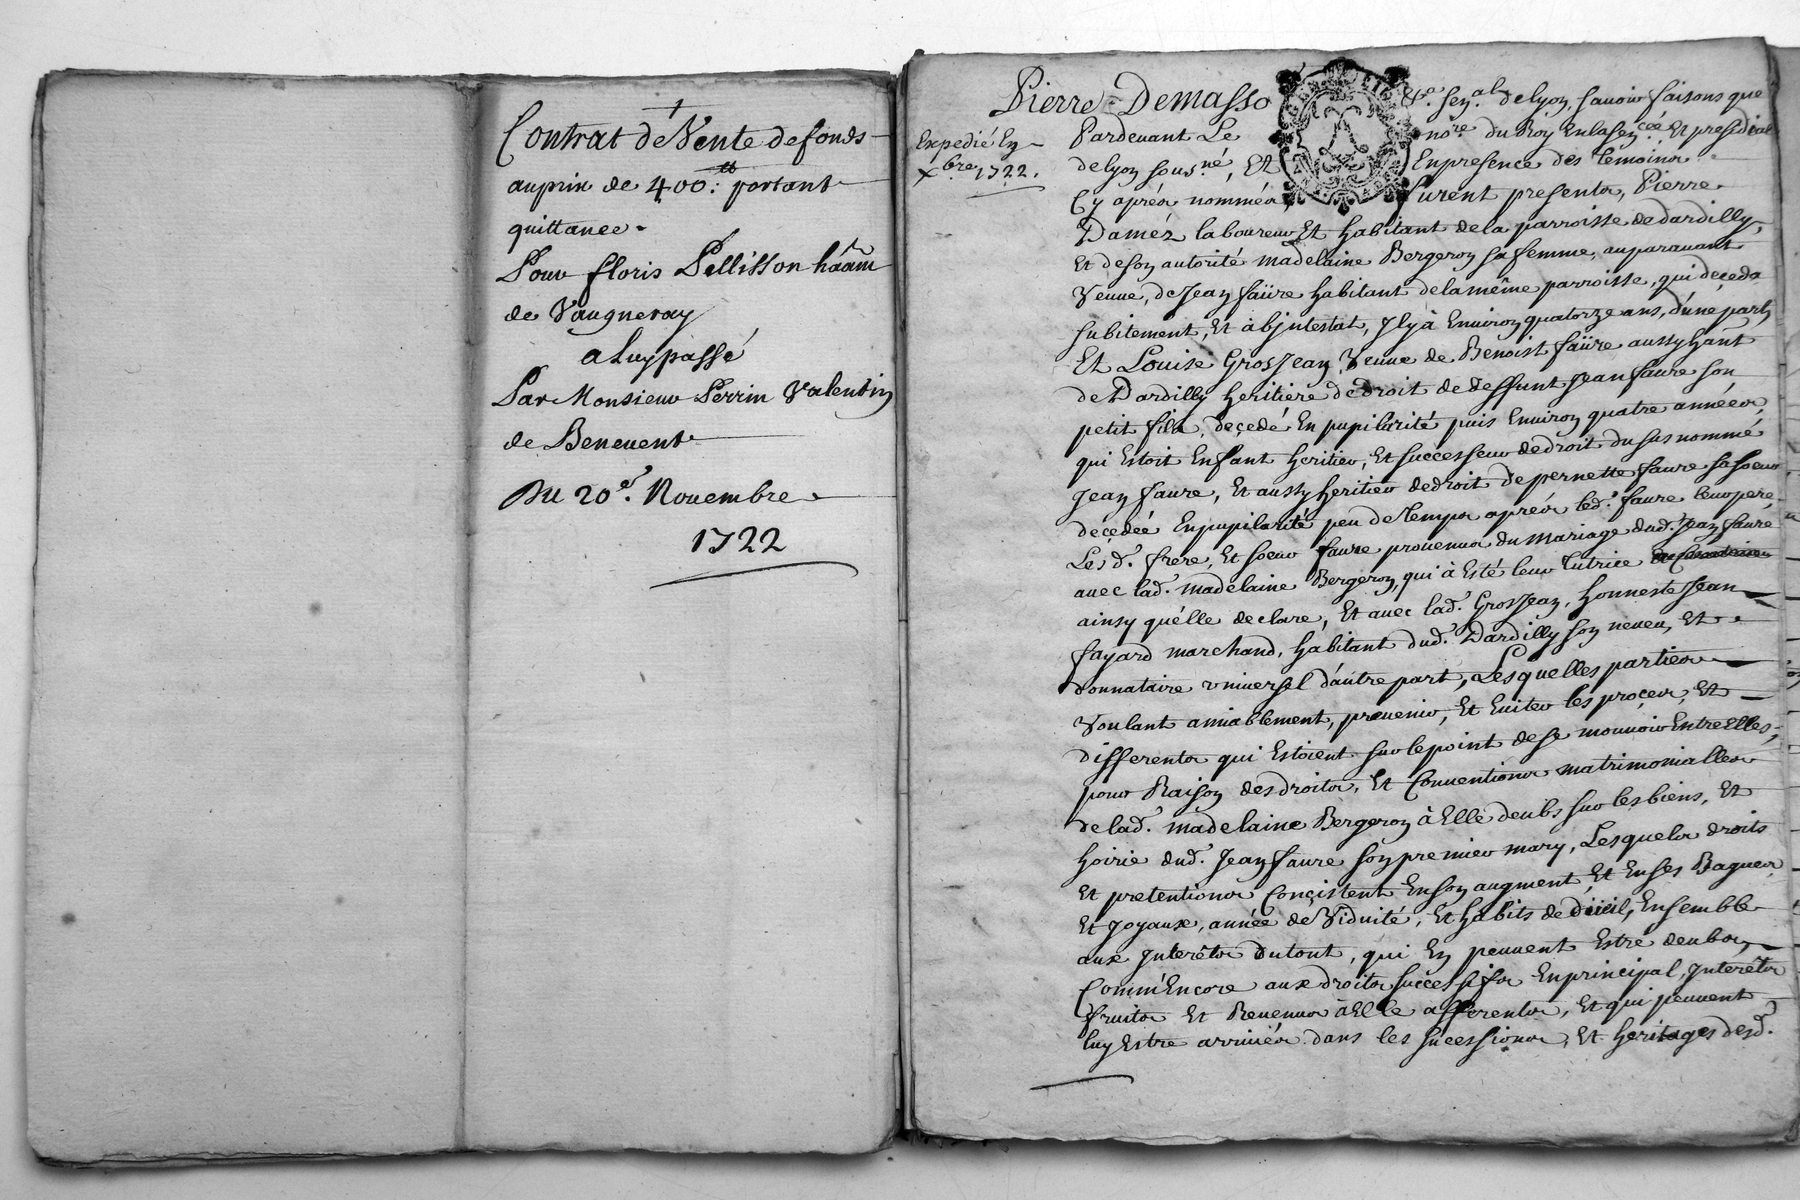 Contrat de Vente de fonds
au prix de 400:ᵗᵗ portant
quittance.
Pour floris Pellisson ha͠a͠nt
de Vaugneray
a luy passé
Par Monsieur Perrin Valentin
de Benevent
Du 20ᵉ. Novembre
1722
Pierre Demasso &ᵃ. senᵃˡ. de lyon, savoir faisons que
Expedié En
xᵇʳᵉ 1722.
Pardevant Le noʳᵉ. du Roy En la senᶜᵉᵉ Et presidial
de lyon sousⁿᵉ́, Et En presence des temoins
Cy aprés nommés, furent presents, Pierre
Daméz laboureur Et habitant de la parroisse de dardilly,
Et de son autorité madelaine Bergeron sa femme, auparavant
Veuve, de Jean faüre habitant de la même parroisse, qui deçeda
subitement, Et abjntestat, Jl y à Environ quatorze ans, d'une part,
Et Louise GrosJean, Veuve de Benoist faüre aussy hant
de Dardilly heritiere de droit de deffunt Jean faure son
petit fils, deçedé En pupilarité puis Environ quatre années,
qui Estoit Enfant heritier, Et successeur de droit du susnommé
Jean faure, Et aussy heritier de droit de pernette faure sa soeur
décedée En pupilarité peu de temps aprés led. faure leur pere
Lesd. frere, Et soeur faure provenus du mariage dud. Jean faure
avec lad. madelaine Bergeron, qui à Esté leur tutrice
ainsy qu'elle declare, Et avec lad. GrosJean, honneste Jean
fayard marchand, habitant dud. Dardilly son neveu, Et
donnataire universel d'autre part, Lesquelles parties
Voulant amiablement, prevenir, Et Eviter les proçes, Et
differents qui Estoient sur le point de se mouvoir Entre Elles,
pour Raison des droits, Et Conventions matrimonialles
de lad. madelaine Bergeron à Elle deubs sur les biens, Et
hoirie dud. Jean faure son premier mary, Lesquels droits
Et pretentions Conçistent En son augment, Et En ses Bagues
Et Joyaux, année de Viduité, Et habits de düeil, Ensemble
aux Jnterêts du tout, qui En peuvent Estre deubs,
Comm'Encore aux droits successifs En principal, Jnterêts
fruits Et Revenus à Elle afferents, Et qui peuvent
luy Estre arrivés dans les sucessions, Et heritages desd.